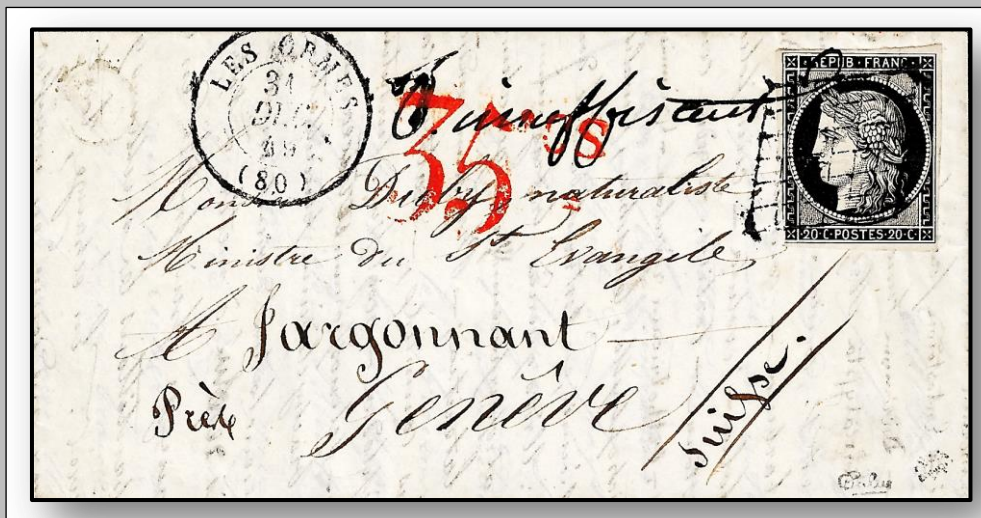 LES ORMES
31
DEC.
49
(80)
P. insuffisant
35 cs
REPUB·FRANC·
20·C·POSTES·20·C·
Monsieur Duby, naturaliste
Ministre du St Evangile
A Jargonnant
Près Genêve
Suisse.